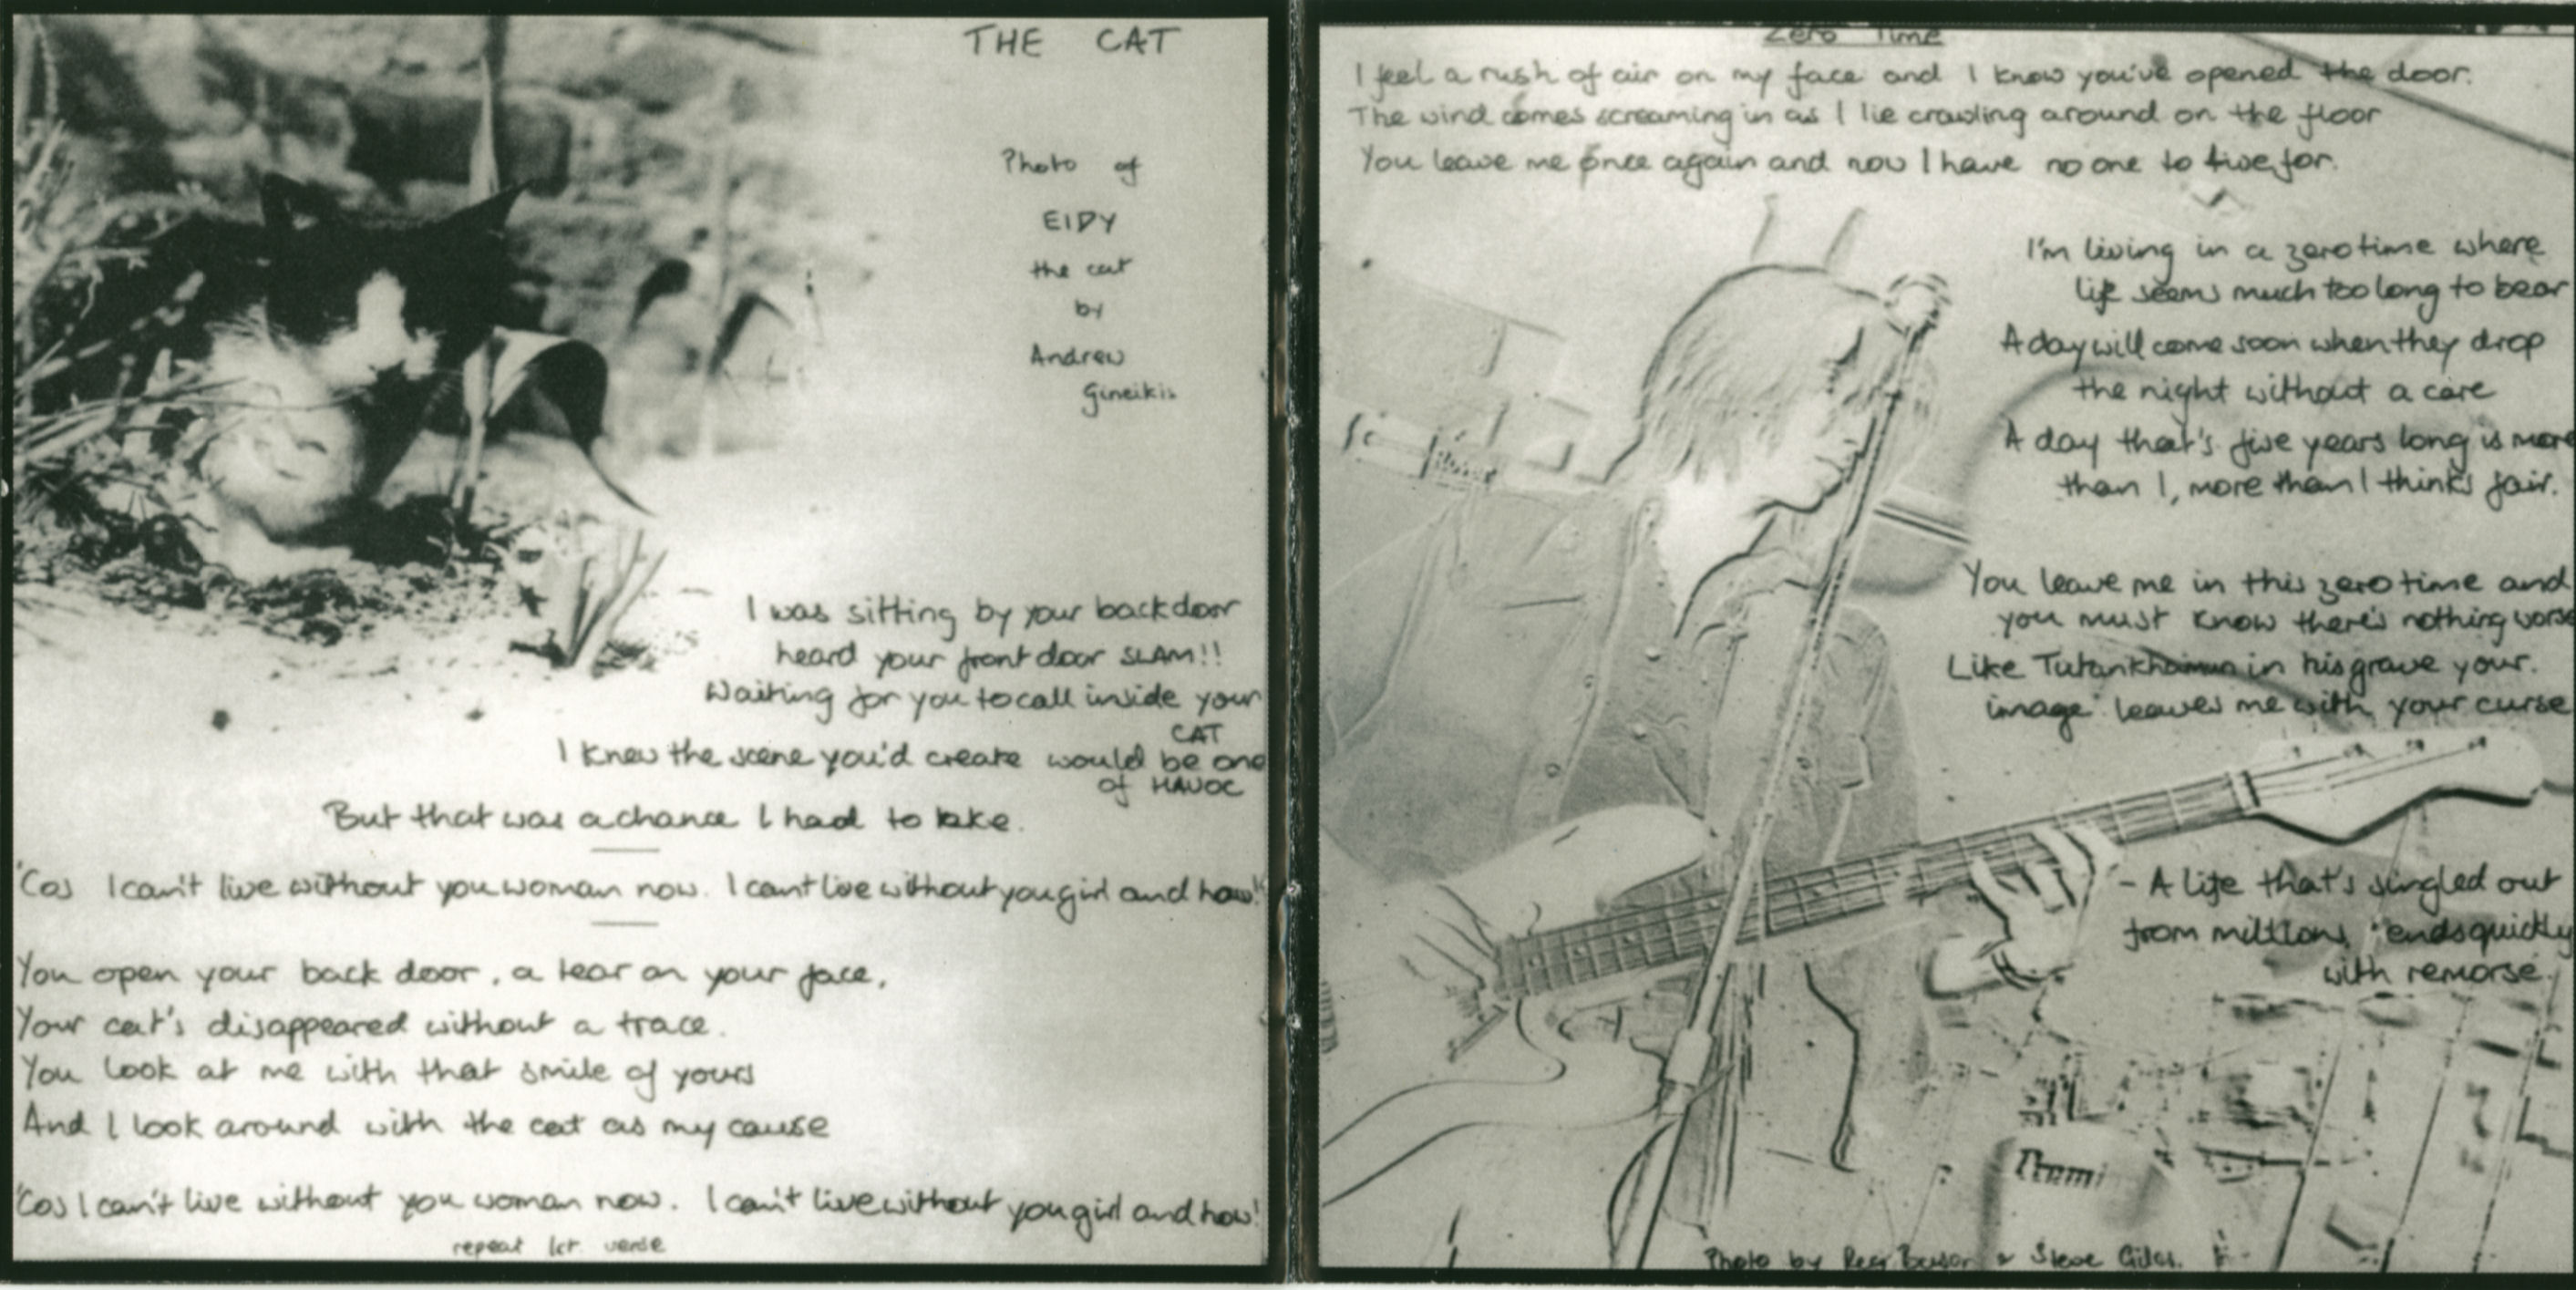 THE CAT
Photo of
EIDY
the cat
by
Andrew
Gineikis
I was sitting by your backdoor
heard your front door SLAM!!
Waiting for you to call inside your
CAT
I knew the scene you'd create would be one
of HAVOC
But that was a chance I had to take.
'Cos I can't live without you woman now. I cant live without you girl and how!
You open your back door, a tear on your face,
Your cat's disappeared without a trace.
You look at me with that smile of yours
And I look around with the cat as my cause
'Cos I can't live without you woman now. I can't live without you girl and how!
repeat 1st. verse
Zero Time
I feel a rush of air on my face and I know you've opened the door.
The wind comes screaming in as I lie crawling around on the floor
You leave me once again and now I have no one to live for.
I'm living in a zero time where
life seems much too long to bear
A day will come soon when they drop
the night without a care
A day that's five years long is more
than I, more than I thinks fair.
You leave me in this zero time and
you must know there's nothing worse
Like Tutankhamun in his grave your
image leaves me with your curse
- A life that's singled out
from millions, ends quickly
with remorse.
Premi
Photo by & Steve Giles.